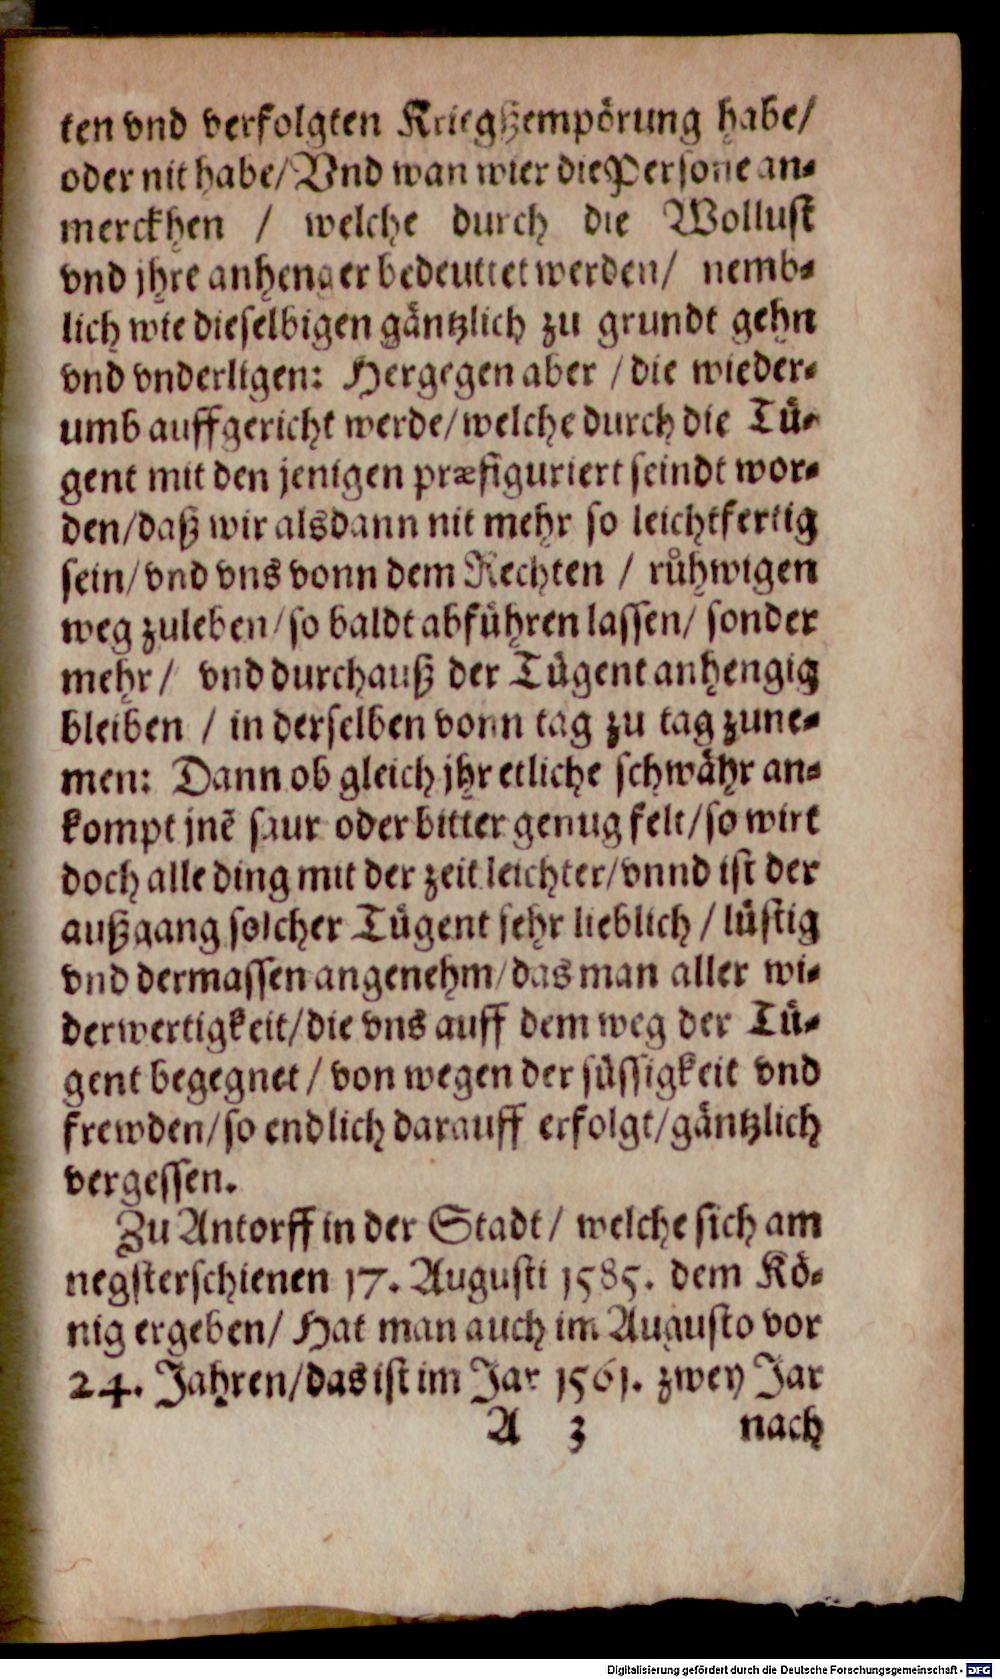 ten vnd verfolgten Kriegßempörung habe/
oder nit habe/ Vnd wan wier die Persone an-
merckhen / welche durch die Wollust
vnd jhre anhenger bedeuttet werden/ nemb-
lich wie dieselbigen gäntzlich zu grundt gehn
vnd vnderligen: Hergegen aber / die wieder-
umb auffgericht werde/ welche durch die Tü-
gent mit den jenigen præfiguriert seindt wor-
den/ daß wir alsdann nit mehr so leichtfertig
sein/ vnd vns vonn dem Rechten / růhwigen
weg zuleben/ so baldt abführen lassen/ sonder
mehr/ vnd durchauß der Tügent anhengig
bleiben / in derselben vonn tag zu tag zune-
men: Dann ob gleich jhr etliche schwähr an-
kompt jnē saur oder bitter genug felt/ so wirt
doch alle ding mit der zeit leichter/ vnnd ist der
außgang solcher Tügent sehr lieblich / lüstig
vnd dermassen angenehm/ das man aller wi-
derwertigkeit/ die vns auff dem weg der Tü-
gent begegnet / von wegen der süssigkeit vnd
frewden/ so endlich darauff erfolgt/ gäntzlich
vergessen.
Zu Antorff in der Stadt/ welche sich am
negsterschienen 17. Augusti 1585. dem Kö-
nig ergeben/ Hat man auch im Augusto vor
24. Jahren/ das ist im Jar 1561. zwey Jar
A 3 nach
Digitalisierung gefördert durch die Deutsche Forschungsgemeinschaft - DFG